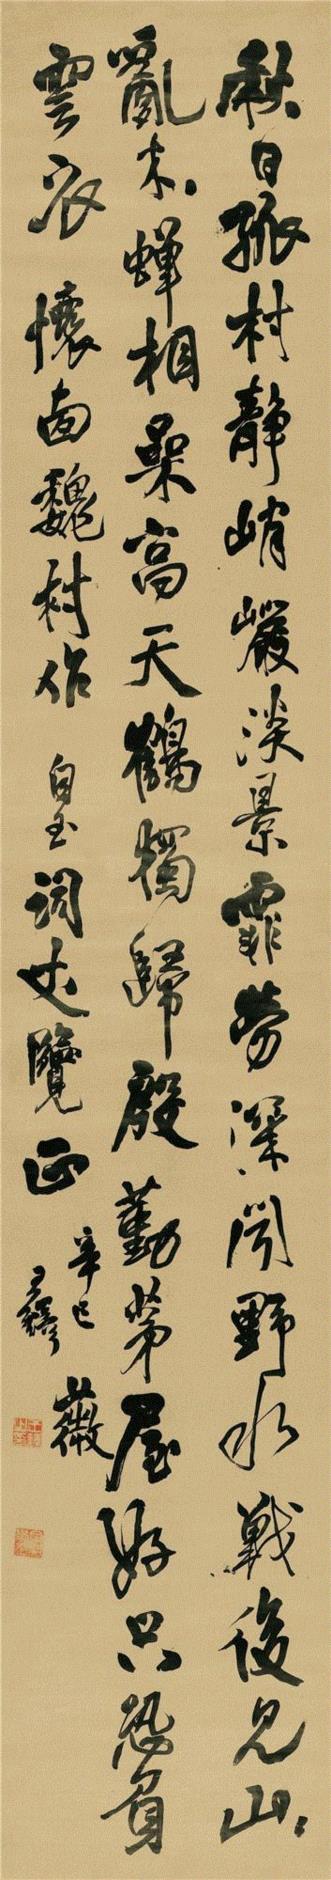 秋日孤村靜峭巖淡景霏勞深閒野水戰後見山
亂木蟬相喿高天鶴獨歸殷勤茅屋好只恐負
雲衣 懷魏村作 玉詞丈覽正
辛巳
薇
王鐸